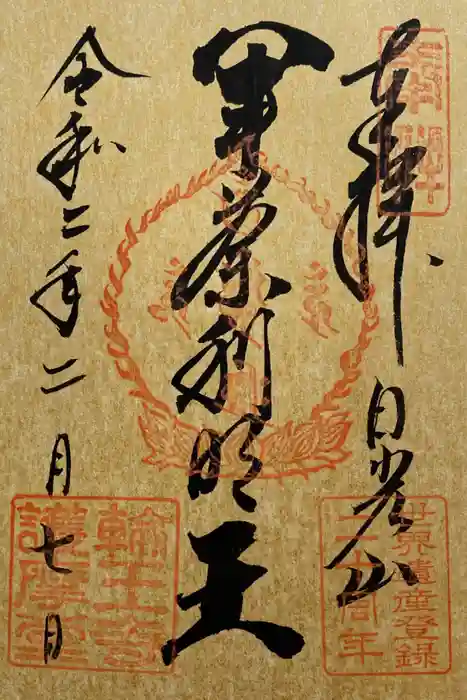 奉拝 日光山
世界遺産登録
二十周年
軍荼利明王
令和二年二月七日
輪王寺
護摩堂